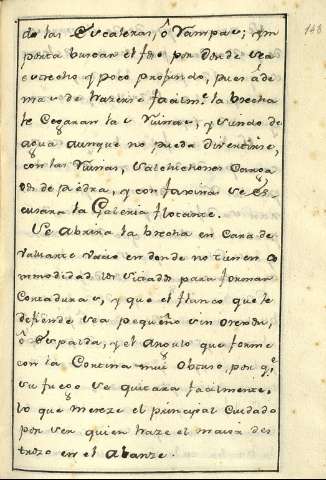 de las Escaleras, ô Rampas; ym
porta buscar el foso por donde sea
estrecho y poco profundo, pues ade
mas de hazerse facilmte. la brecha
le Cegaran las Ruinas, y siendo de
agua aunque no pueda divertirse,
con las Ruinas, Salchichones Carga
dos de piedra, y con faxina se es
cusara la Galeria flotante.
Se abrira la brecha en Cara de
Valuarte Vacio en donde no tienen co
mmodidad los sitiados para formar
Cortaduras, y que el flanco que le
defiende sea pequeño sin orexon,
ô Espalda, y el Angulo que forme
con la Cortina mui obtuso, por qe.
su fuego se quitara facilmente,
lo que mereze el principal Cuidado
por ser quien haze el maior des
trozo en el abanze.